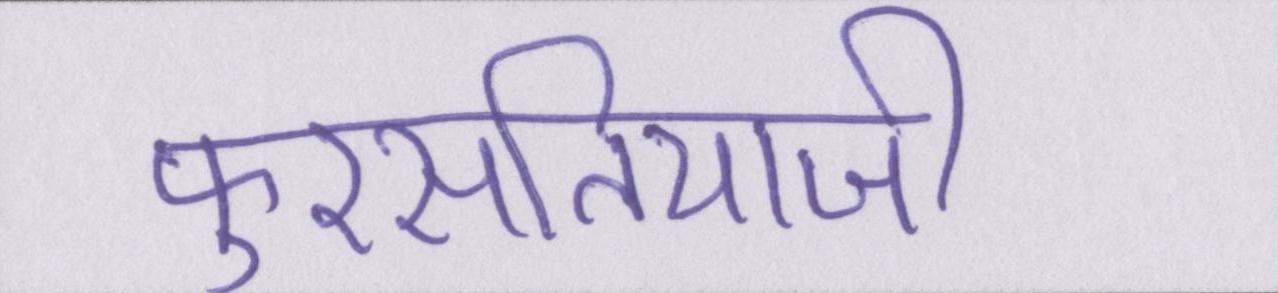 फुरसतियाजी